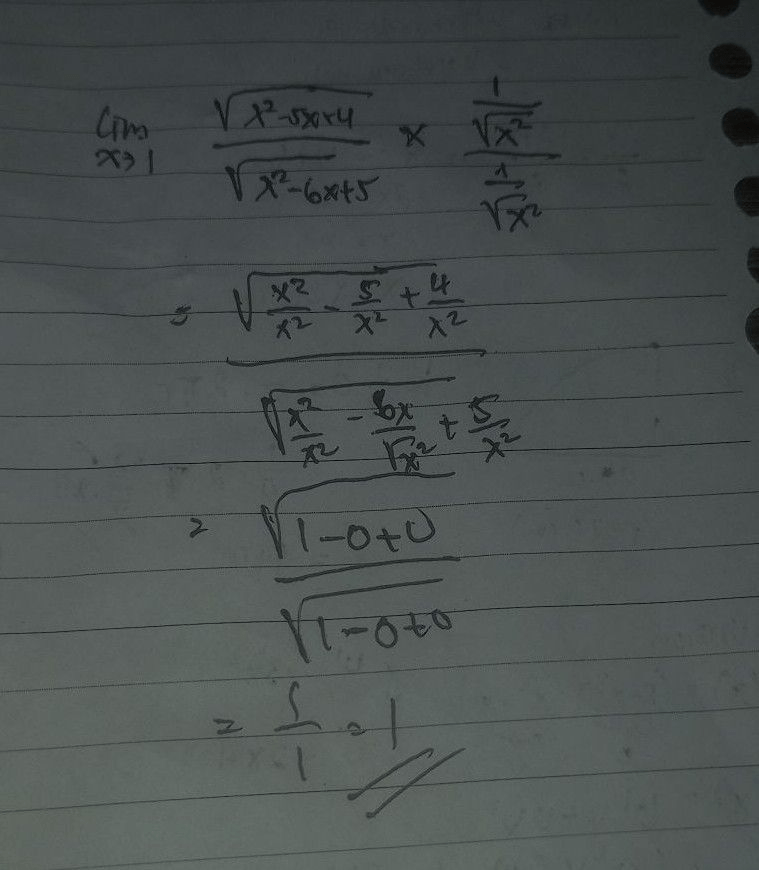 lim x→1 √(x²-5x+4) / √(x²-6x+5) × (1/√x²) / (1/√x²)
= √(x²/x² - 5/x² + 4/x²) / √(x²/x² - 6x/√x² + 5/x²)
= √(1-0+0) / √(1-0+0)
= 1/1 = 1